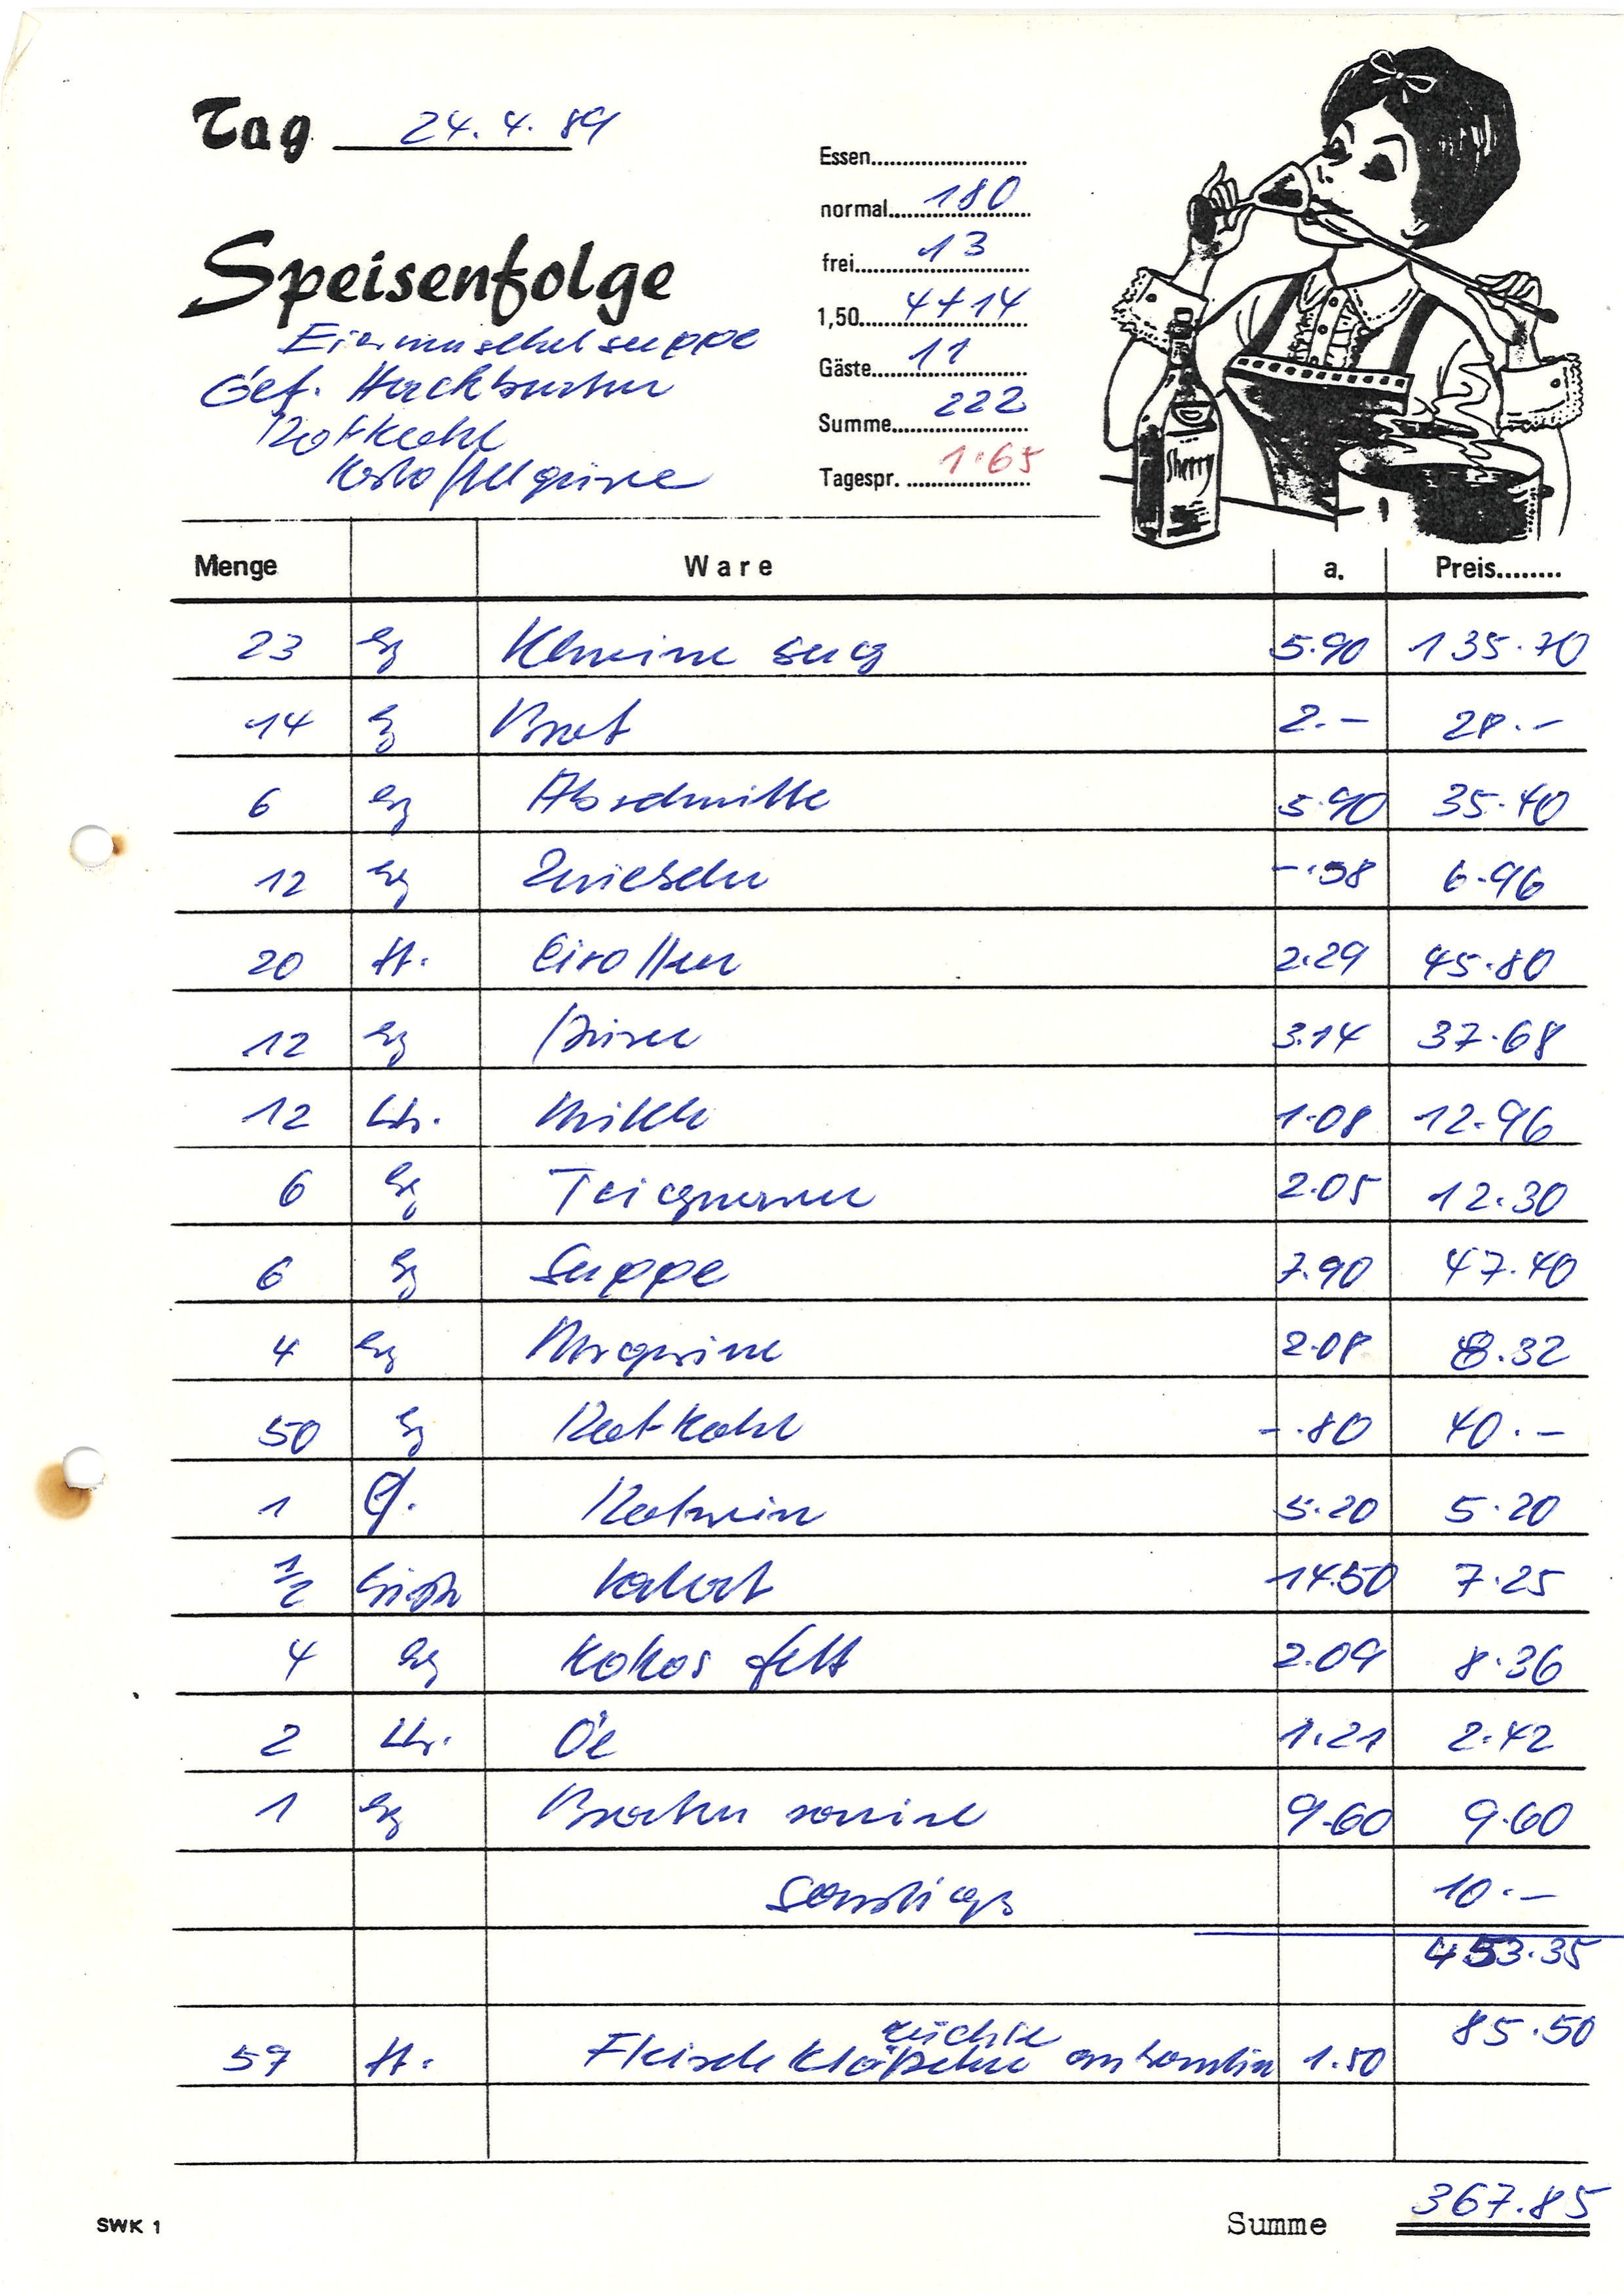 Tag 24.4.89
Essen
normal 180
frei 13
1,50 4+14
Gäste 11
Summe 222
Tagespr. 1.65
Speisenfolge
Eiermuschelsuppe
Gef. Hackbraten
Rotkohl
Kartoffelpüree
Sherry
Menge Ware a. Preis
23 kg 5.90 135.70
14 kg Brot 2.- 28.-
6 kg Abschnitte 5.90 35.40
12 kg Zwiebeln -.58 6.96
20 St. Eirollen 2.29 45.80
12 kg Püree 3.14 37.68
12 Ltr. Milch 1.08 12.96
6 kg Teigwaren 2.05 12.30
6 kg Suppe 7.90 47.40
4 kg Margarine 2.08 8.32
50 kg Rotkohl -.80 40.-
1 Fl. Rotwein 5.20 5.20
1/2 14.50 7.25
4 kg Kokosfett 2.09 8.36
2 Ltr. Öl 1.21 2.42
1 kg Bratensauce 9.60 9.60
Sonstiges 10.-
453.35
85.50
57 St. Fleischklößchen 1.50
SWK 1 Summe 367.85